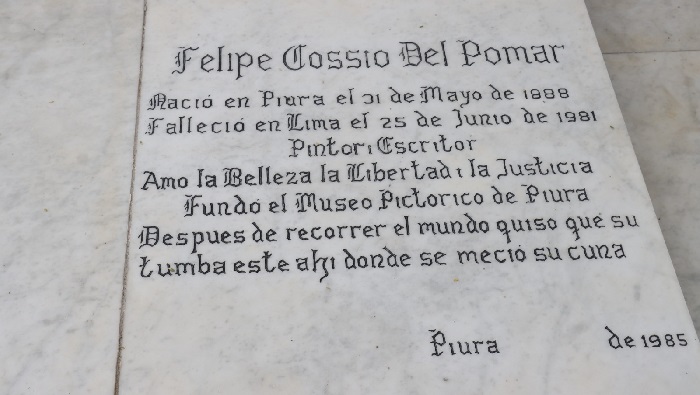 Felipe Cossio Del Pomar
Nació en Piura el 31 de Mayo de 1888
Falleció en Lima el 25 de Junio de 1981
Pintor i Escritor
Amo la Belleza la Libertad i la Justicia
Fundó el Museo Pictorico de Piura
Despues de recorrer el mundo quiso que su
tumba este ahi donde se meció su cuna
Piura de 1985